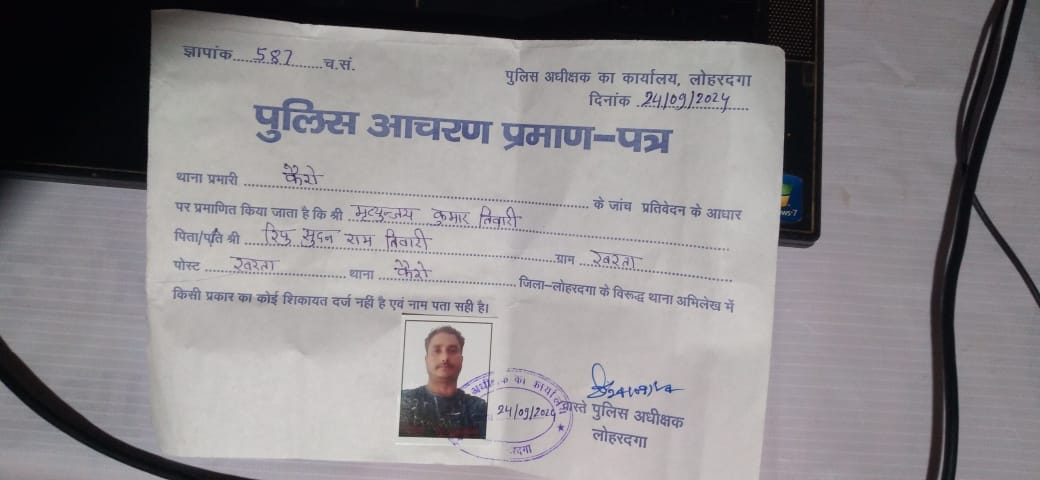 ज्ञापांक 587 च.सं.
पुलिस अधीक्षक का कार्यालय, लोहरदगा
दिनांक 24/09/2024
पुलिस आचरण प्रमाण-पत्र
थाना प्रभारी कैरो के जांच प्रतिवेदन के आधार
पर प्रमाणित किया जाता है कि श्री मृत्युन्जय कुमार तिवारी
पिता/पति श्री रिपु सुदन राम तिवारी ग्राम खरता
पोस्ट खरता थाना कैरो जिला-लोहरदगा के विरूद्ध थाना अभिलेख में
किसी प्रकार का कोई शिकायत दर्ज नहीं है एवं नाम पता सही है।
अधीक्षक का कार्यालय
24/09/2024
वास्ते पुलिस अधीक्षक
लोहरदगा